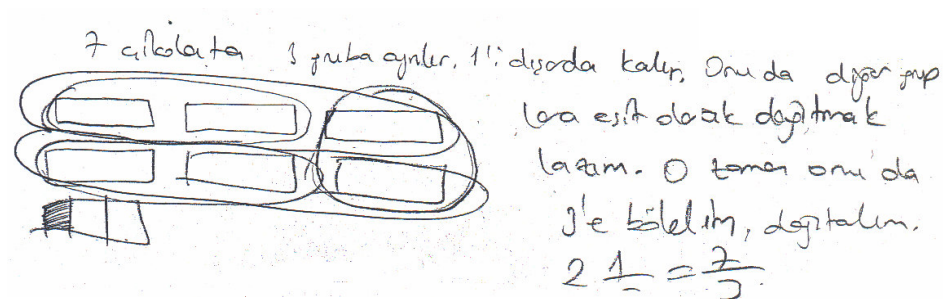 7 çikolata 3 gruba ayrılır, 1'i dışarda kalır, Onu da diğer grup
lara eşit olarak dağıtmak
lazım. O zaman onu da
3'e bölelim, dağıtalım.
2 1/ = 7/3